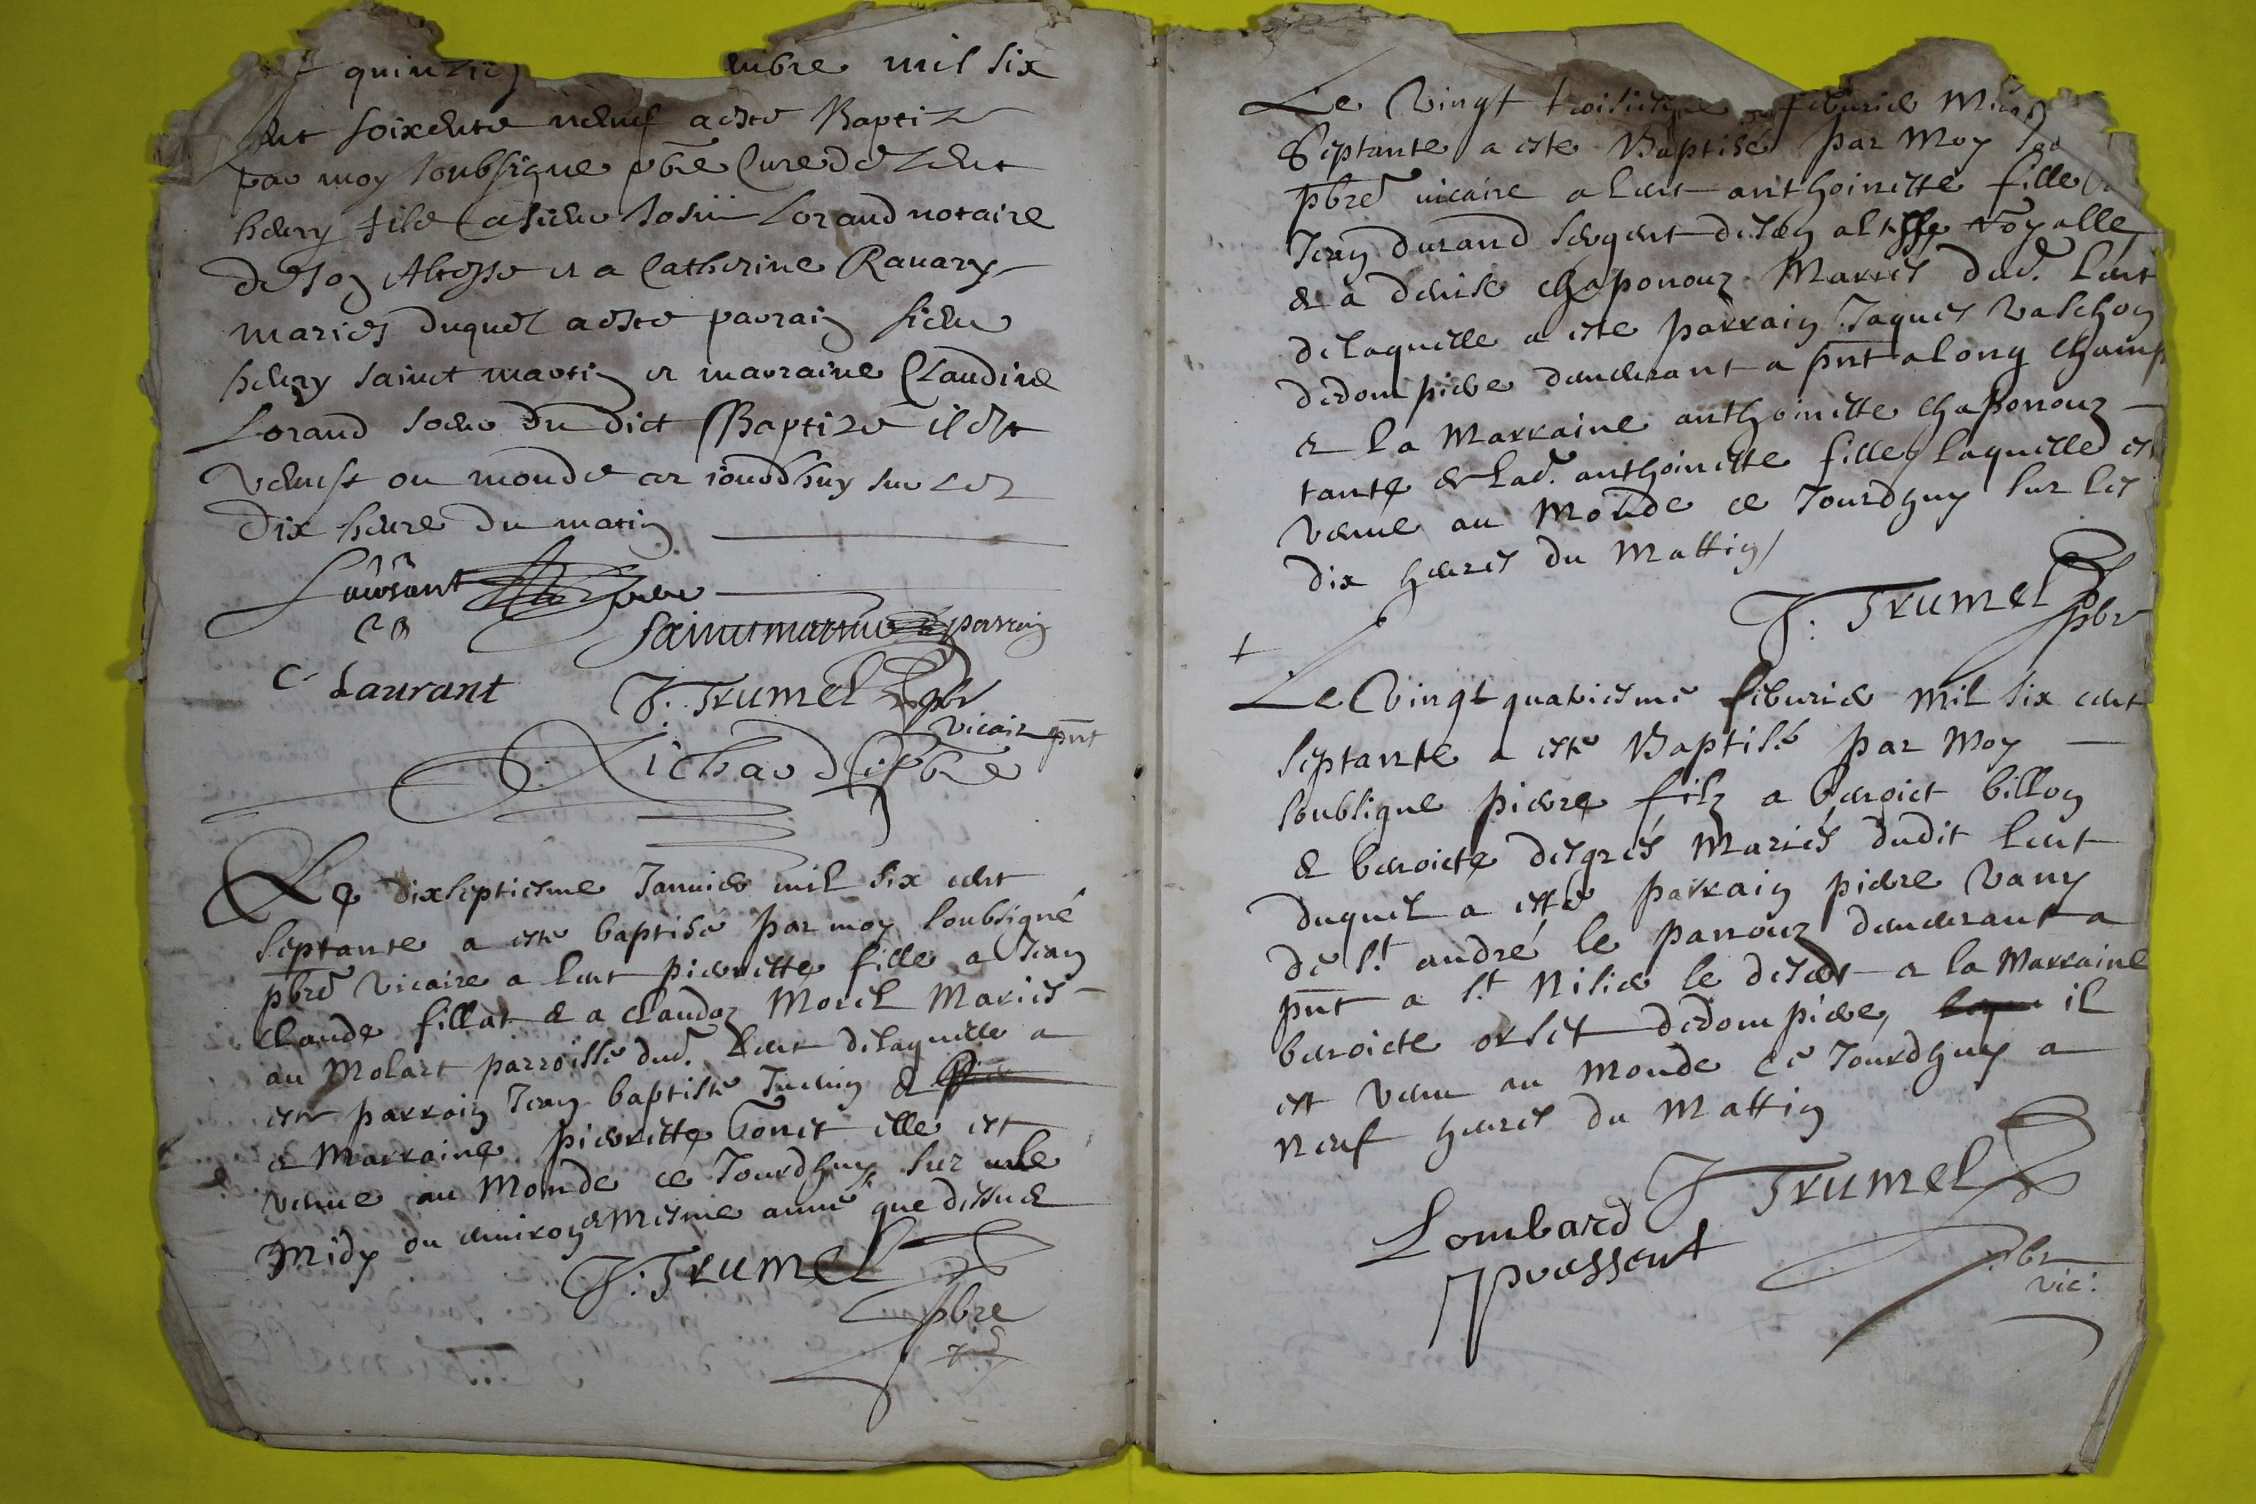 quinzies mbre mil six
ent soixente neuf a este Baptize
par moy soubsigne pbre Cure de Lent
henry filz a sieur Lorand notaire
de son Altesse et a Catherine Ravary
maries duquel a este parrain sieur
henry sainct martin et marraine Claudine
Lorand soeur du dict Baptize il est
venust ou monde ce jourdhuy sur les
dix heure du matin
Laurant
sainctmartin parrain
C. Laurant J: Trumel pbr
vicair pnt
Richard pbre
Le dixseptiesme Janvier mil six cent
septante a este baptisé par moy soubsigné
pbre vicaire a Lent pierrette fille a Jean
Claude fillat & a claudaz Morel Maries
au Molart parroisse dud. Lent delaquelle a
este parrain Jean baptiste &
et Marraine pierrette Gonet elle est
venue au Monde ce Jourdhuy sur le
Midy ou environ & Mesme anne que dessus
J: Trumel
pbre
Le Vingt troisiesme febvrier
Septante a este Baptisé par Moy
pbre vicaire a Lent anthoinette fille
Jean durand sergent de son altesse royalle
& a denise chaponouz Mariés dud. Lent
delaquelle a este parrain Jaques vaschon
dedompierre demeurant a pnt a long champ
et la Marraine anthoinette chaponouz
tante de lad. anthoinette fille laquelle est
venue au Monde ce Jourdhuy sur les
dix heures du Mattin
J: Trumel pbr
Le Vingt quatriesme febvrier Mil six cent
septante a esté Baptisé par Moy
soubsigne pierre filz a benoict billon
& benoicte desgrés Mariés dudit Lent
duquel a esté parrain pierre vany
de St. andré le panouz demeurant a
pnt a St. Nisier le desert et la Marraine
benoicte orset dedompierre, il
est venu au Monde ce Jourdhuy a
neuf heures du Mattin
J Trumel
Lombard
pressent
pbr
vic: